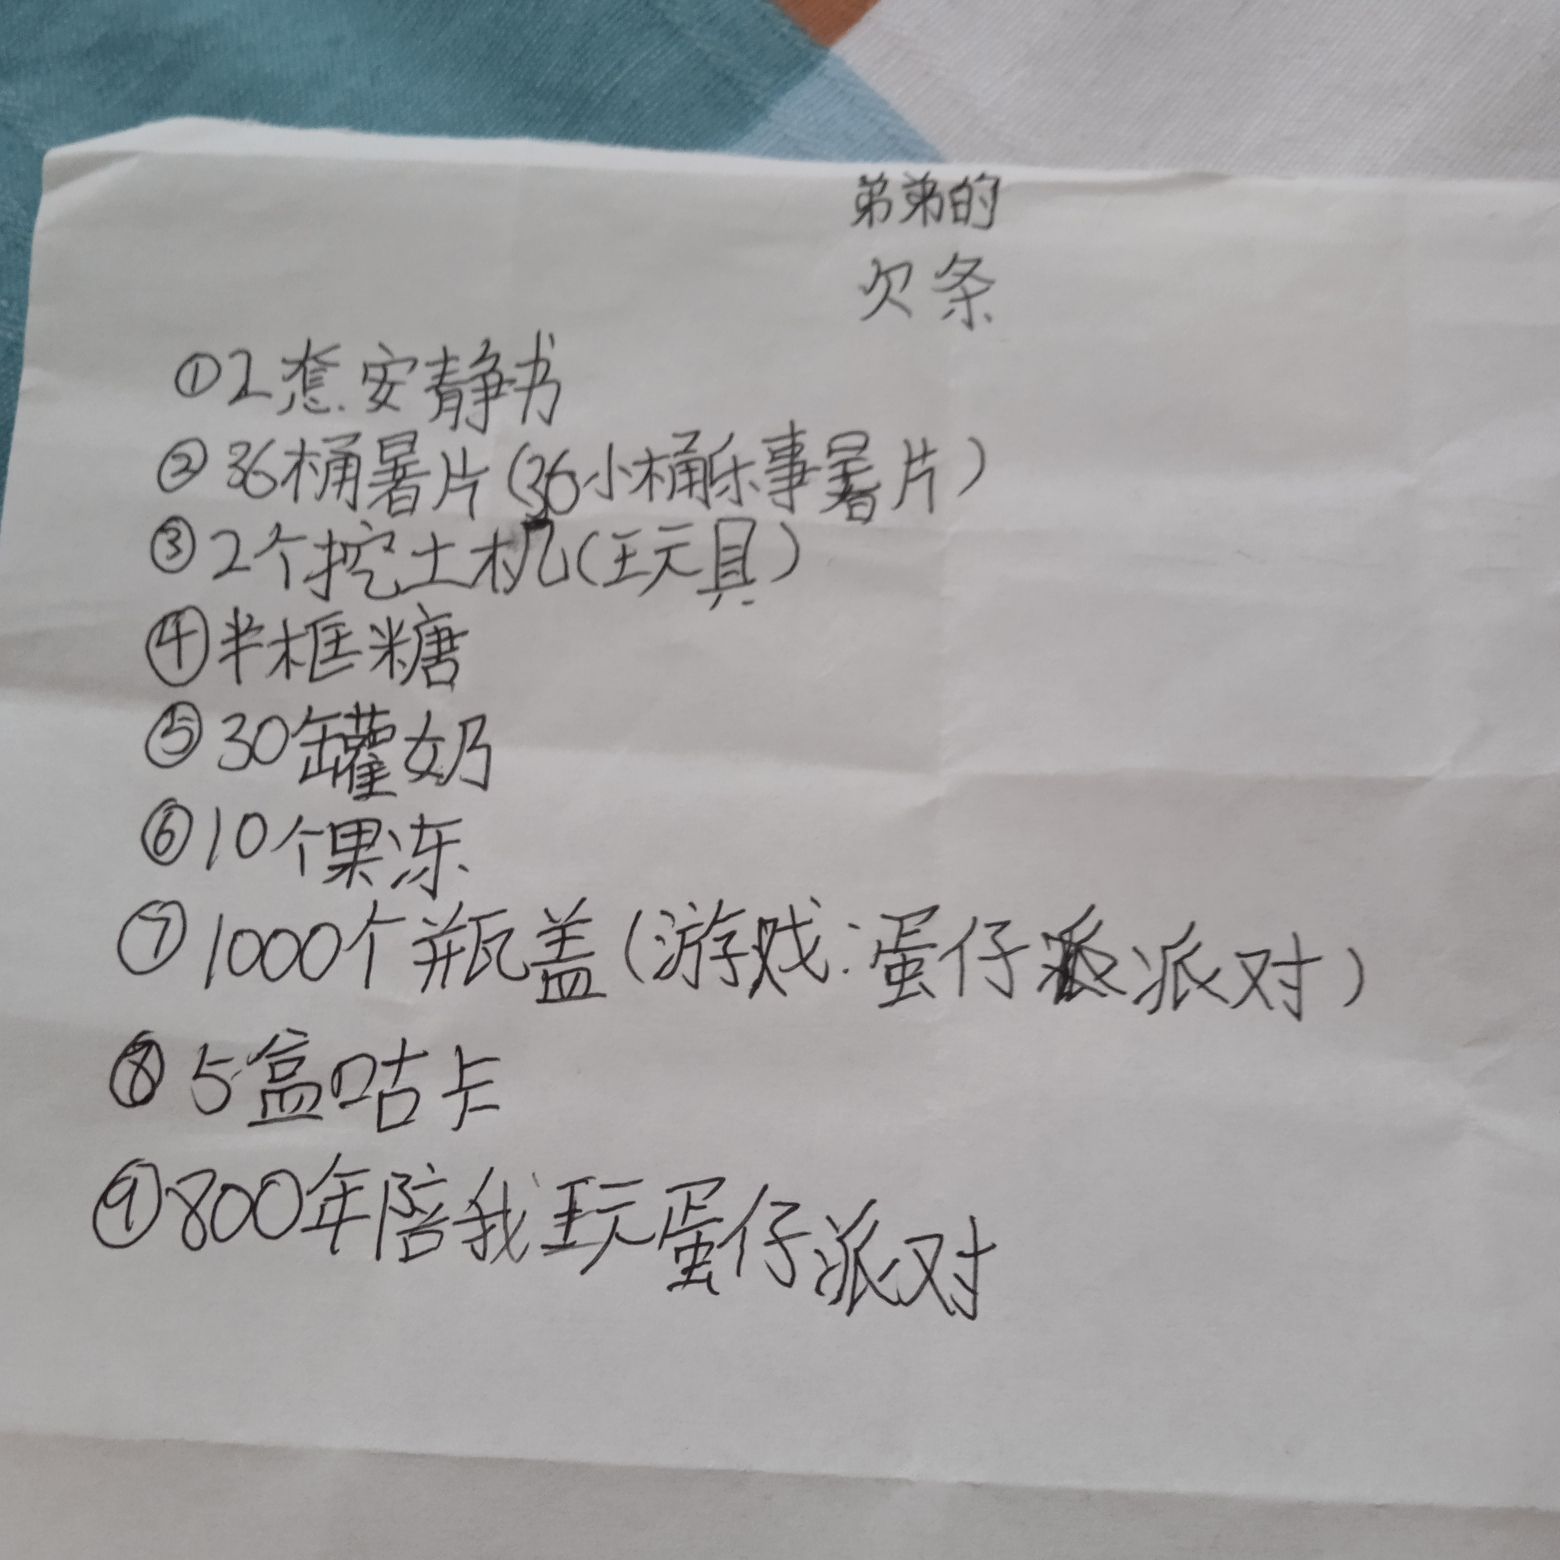 弟弟的
欠条
①2套安静书
②36桶暑片(36小桶乐事暑片)
③2个挖土机(玩具)
④半框糖
⑤30罐奶
⑥10个果冻
⑦1000个瓶盖(游戏:蛋仔派对)
⑧5盒咕卡
⑨800年陪我玩蛋仔派对